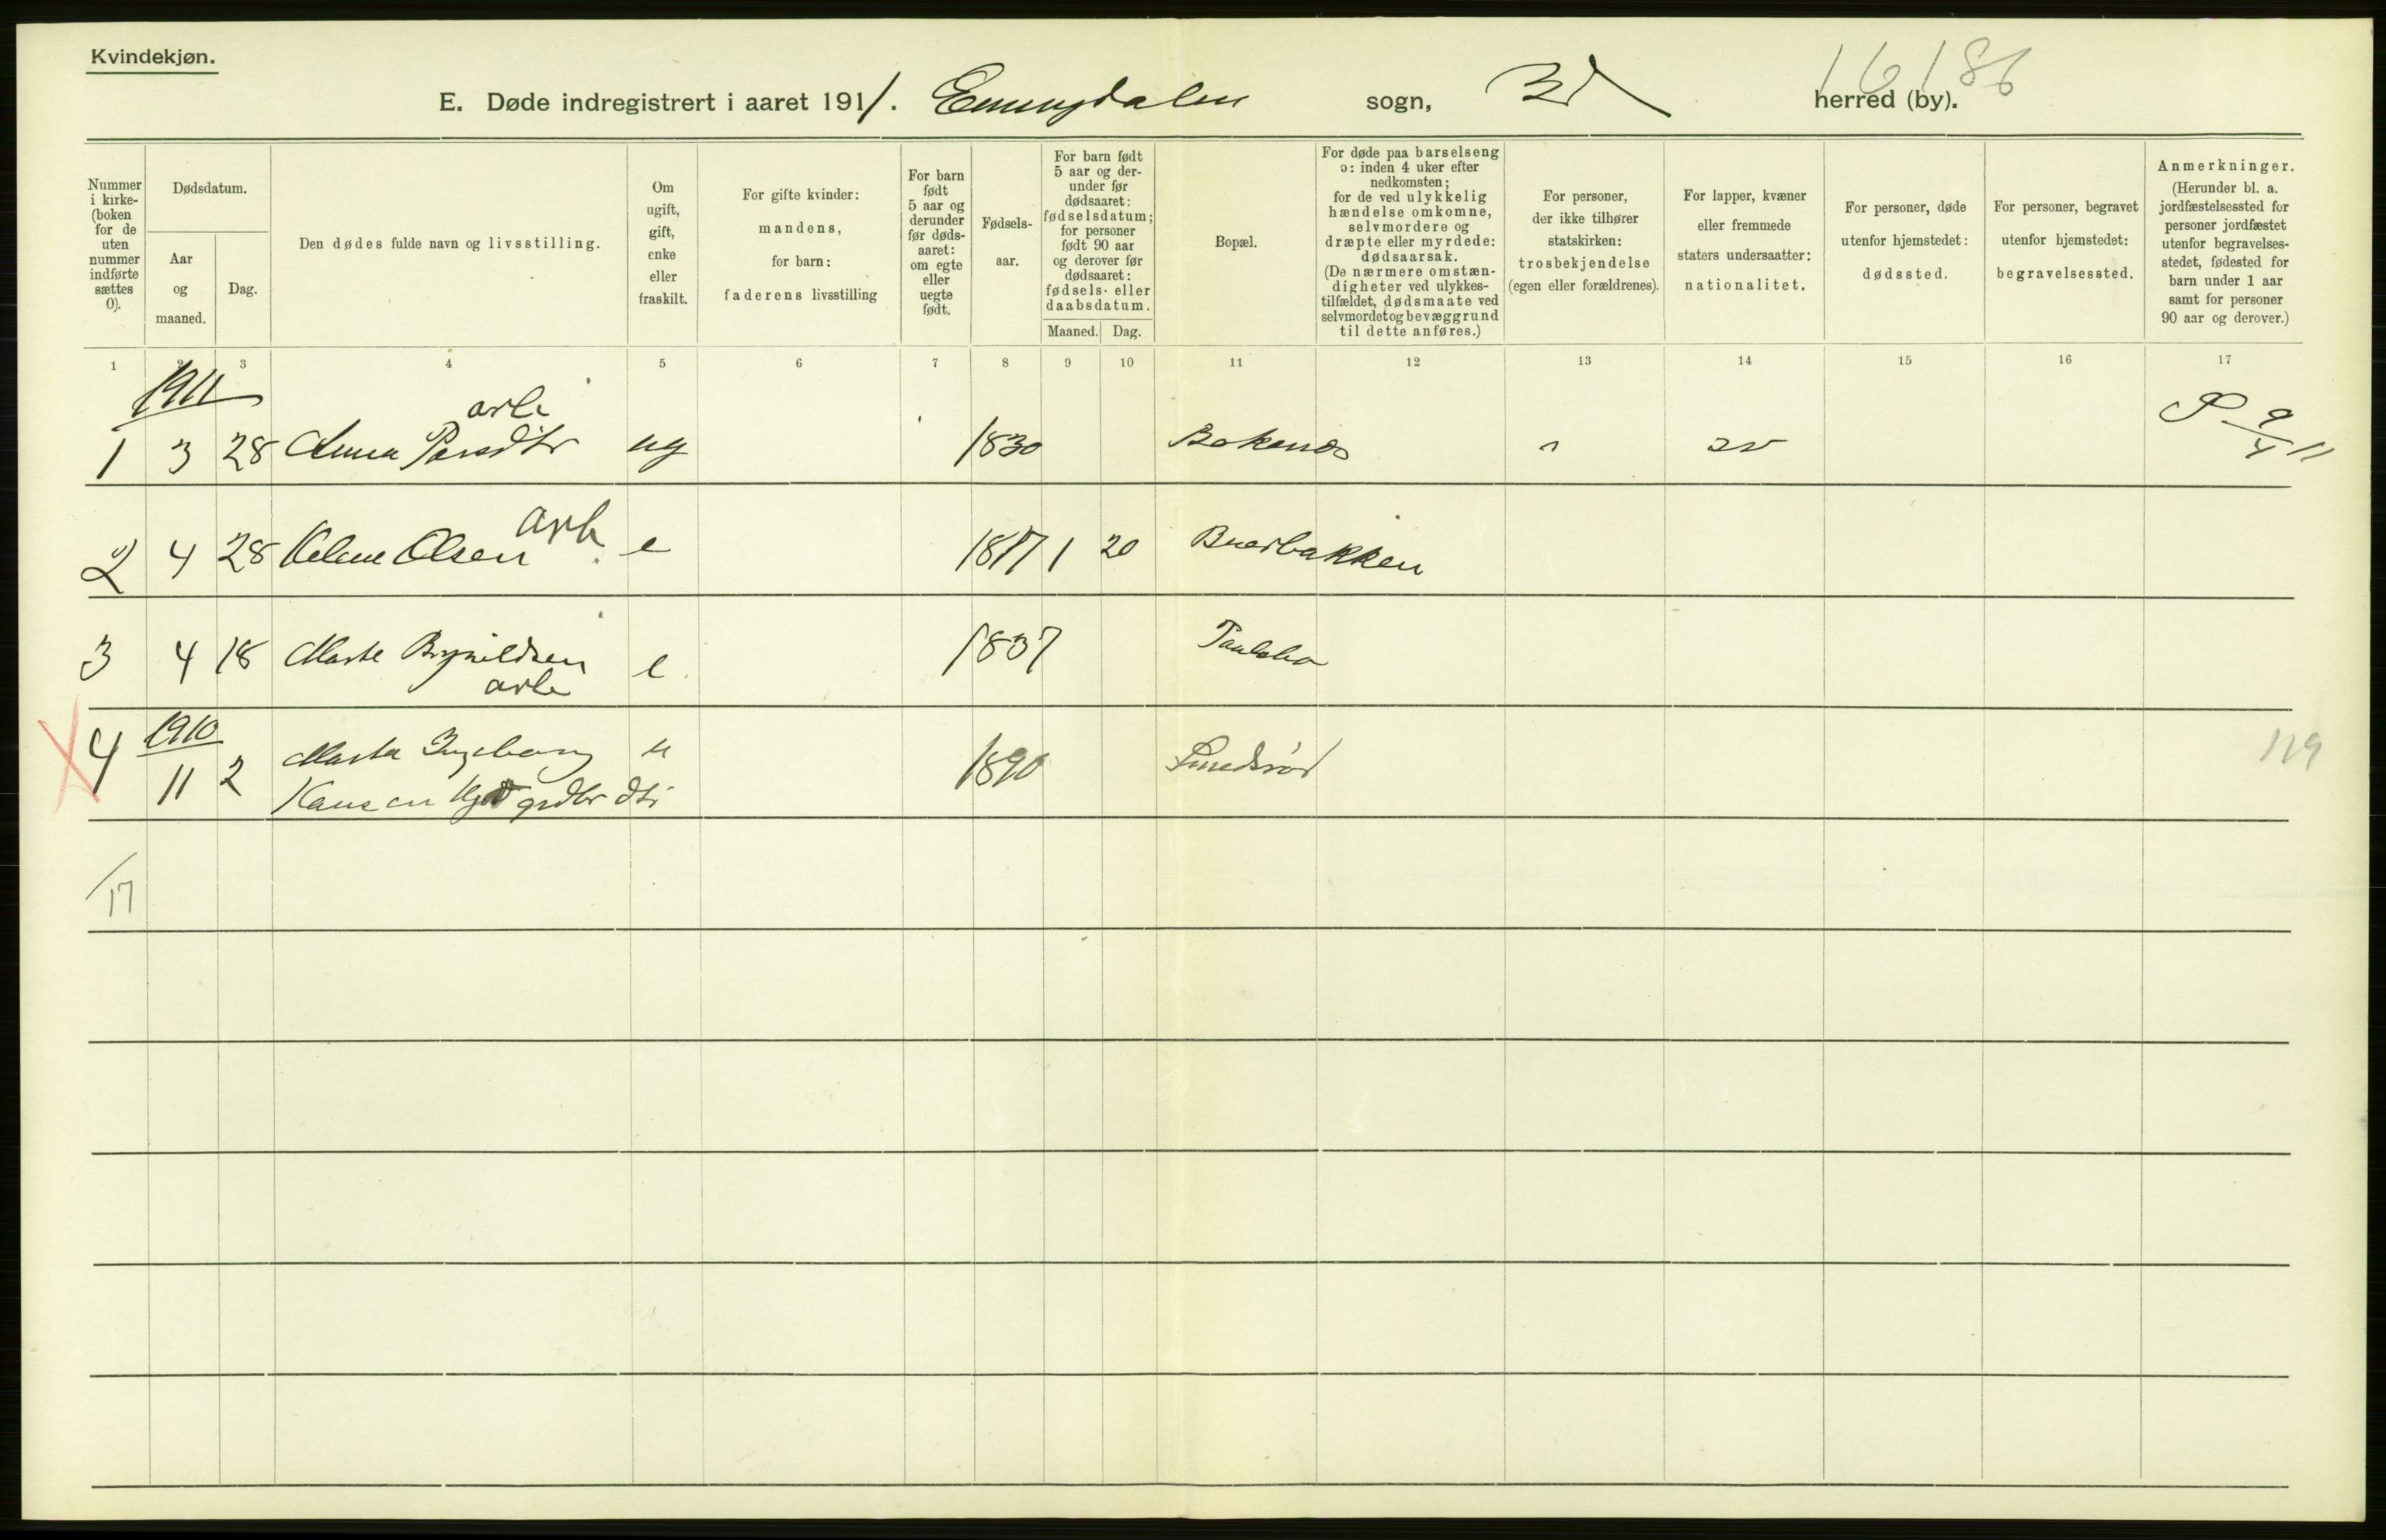 Kvindekjøn.
16 186
E. Døde indregistrert i aaret 1911. Enningdalen sogn, herred (by).
Nummer i kirke- (boken for de uten nummer indførte sættes 0).
Dødsdatum.
Aar og maaned.
Dag.
Den dødes fulde navn og livsstilling.
Om ugift, gift, enke eller fraskilt.
For gifte kvinder: mandens, for barn: faderens livsstilling
For barn født 5 aar og derunder før døds- aaret: om egte eller uegte født.
Fødsels- aar.
For barn født 5 aar og der- under før dødsaaret: fødselsdatum; for personer født 90 aar og derover før dødsaaret: fødsels- eller daabsdatum.
Maaned. Dag.
Bopæl.
For døde paa barselseng ɔ: inden 4 uker efter nedkomsten; for de ved ulykkelig hændelse omkomne, selvmordere og dræpte eller myrdede: dødsaarsak. (De nærmere omstæn- digheter ved ulykkes- tilfældet, dødsmaate ved selvmordet og bevæggrund til dette anføres.)
For personer, der ikke tilhører statskirken: trosbekjendelse (egen eller forældrenes).
For lapper, kvæner eller fremmede staters undersaatter: nationalitet.
For personer, døde utenfor hjemstedet: dødssted.
For personer, begravet utenfor hjemstedet: begravelsessted.
Anmerkninger. (Herunder bl. a. jordfæstelsessted for personer jordfæstet utenfor begravelses- stedet, fødested for barn under 1 aar samt for personer 90 aar og derover.)
1 2 3 4 5 6 7 8 9 10 11 12 13 14 15 16 17
1911
arb
1 3 28 Anna ug 1830 Bokenes sv 9/4 11
arb
2 4 28 Helene Olsen e 1817 1 20 Buerbakken
3 4 18 Marte Brynildsen e 1837 Paulsbo
arb
1910
4 11 2 Marta Ingeborg u 1890 119
Hansen grdbr dtr
17